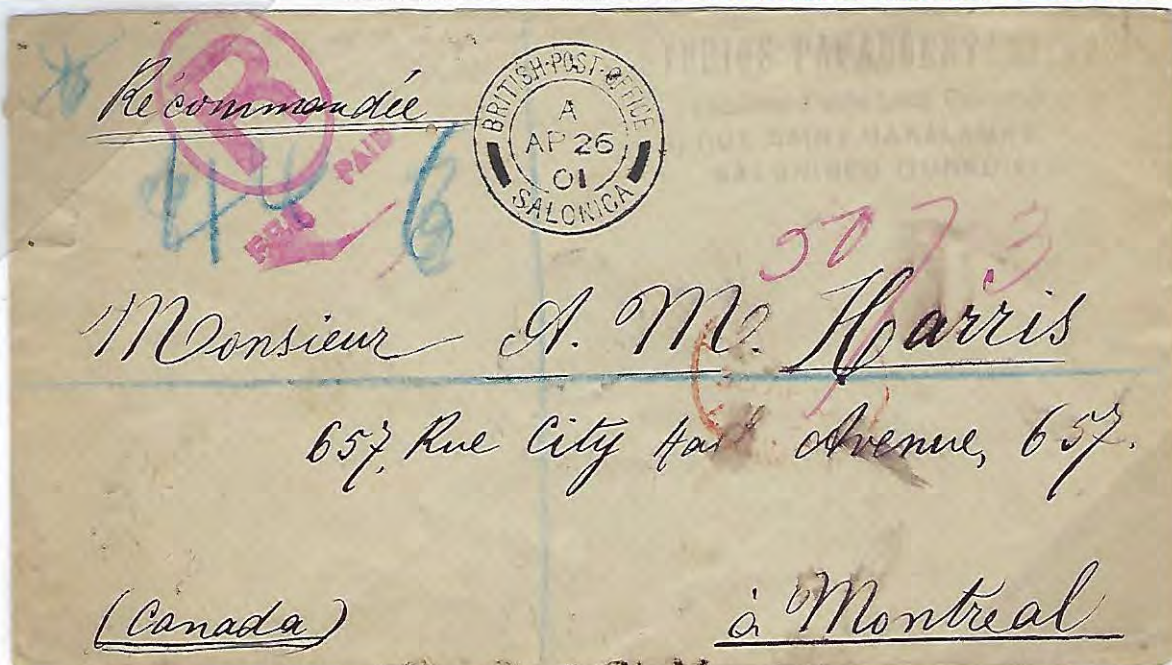 Récommandée
R
REG PAID
BRITISH·POST·OFFICE
A
AP 26
01
SALONICA
Monsieur A. M. Harris
657, Rue City Hall Avenue, 657.
(Canada) à Montreal